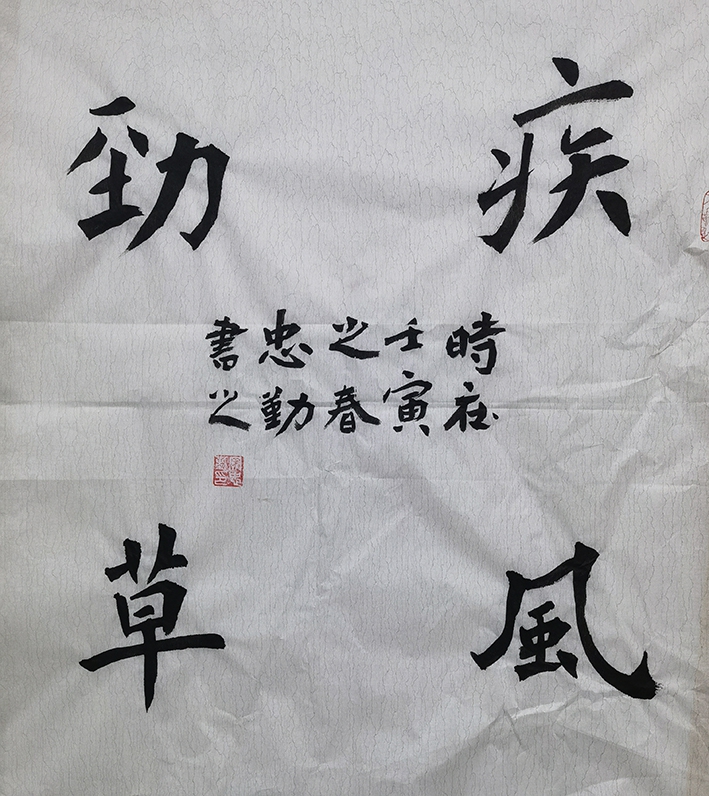 疾風
勁草
時在
壬寅
之春
忠勤
書之